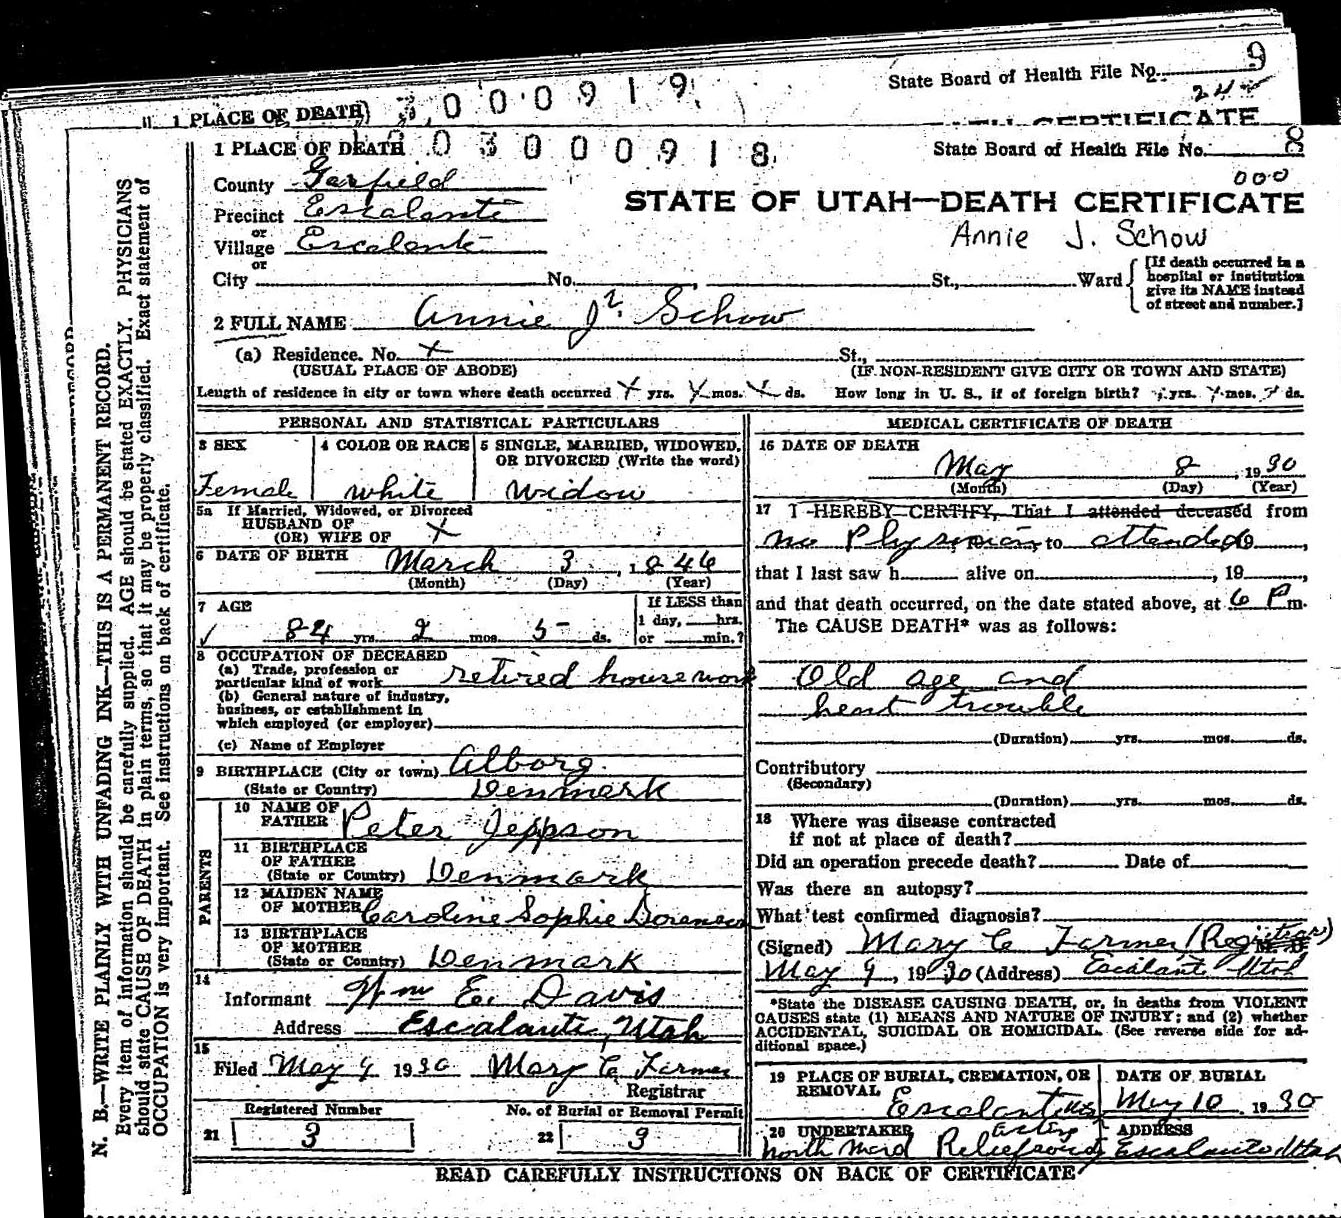 State Board of Health File No. 9
24
1 PLACE OF DEATH) 3,000919
CERTIFICATE
1 PLACE OF DEATH 03000918
State Board of Health File No. 8
000
County Garfield
STATE OF UTAH—DEATH CERTIFICATE
Precinct Escalante
or
Annie J. Schow
Village Escalante
or
City No. St., Ward
[If death occurred in a
hospital or institution
give its NAME instead
of street and number.]
2 FULL NAME Annie J. Schow
(a) Residence. No. x St.,
(USUAL PLACE OF ABODE) (IF NON-RESIDENT GIVE CITY OR TOWN AND STATE)
Length of residence in city or town where death occurred x yrs. x mos. x ds. How long in U. S., if of foreign birth? yrs. mos. ds.
PERSONAL AND STATISTICAL PARTICULARS
3 SEX
4 COLOR OR RACE
5 SINGLE, MARRIED, WIDOWED,
OR DIVORCED (Write the word)
Female white widow
5a If Married, Widowed, or Divorced
HUSBAND OF
(OR) WIFE OF x
6 DATE OF BIRTH March 3, 1846
(Month) (Day) (Year)
7 AGE
If LESS than
1 day, hrs.
✓ 84 yrs. 2 mos. 5 ds. or min.?
8 OCCUPATION OF DECEASED
(a) Trade, profession or
particular kind of work retired housework
(b) General nature of industry,
business, or establishment in
which employed (or employer)
(c) Name of Employer
9 BIRTHPLACE (City or town) Alborg
(State or Country) Denmark
PARENTS
10 NAME OF
FATHER Peter Jeppson
11 BIRTHPLACE
OF FATHER
(State or Country) Denmark
12 MAIDEN NAME
OF MOTHER Caroline Sophie
13 BIRTHPLACE
OF MOTHER
(State or Country) Denmark
14
Informant Wm E. Davis
Address Escalante, Utah
15
Filed May 9 1930 Mary C Farmer
Registrar
Registered Number
21 3
No. of Burial or Removal Permit
22 3
MEDICAL CERTIFICATE OF DEATH
16 DATE OF DEATH
May 8 1930
(Month) (Day) (Year)
17 I HEREBY CERTIFY, That I attended deceased from
no Physician, to attended 19
that I last saw h alive on , 19
and that death occurred, on the date stated above, at 6 P m.
The CAUSE DEATH* was as follows:
Old age and
heart trouble
(Duration) yrs. mos. ds.
Contributory
(Secondary)
(Duration) yrs. mos. ds.
18 Where was disease contracted
if not at place of death?
Did an operation precede death? Date of
Was there an autopsy?
What test confirmed diagnosis?
(Signed) Mary C Farmer (Registrar)
May 9, 1930 (Address) Escalante Utah
*State the DISEASE CAUSING DEATH, or, in deaths from VIOLENT
CAUSES state (1) MEANS AND NATURE OF INJURY; and (2) whether
ACCIDENTAL, SUICIDAL OR HOMICIDAL. (See reverse side for ad-
ditional space.)
19 PLACE OF BURIAL, CREMATION, OR
REMOVAL
Escalante
DATE OF BURIAL
May 10, 1930
20 UNDERTAKER
North Ward Relief
ADDRESS
Escalante Utah
READ CAREFULLY INSTRUCTIONS ON BACK OF CERTIFICATE
N. B.—WRITE PLAINLY WITH UNFADING INK—THIS IS A PERMANENT RECORD.
Every item of information should be carefully supplied. AGE should be stated EXACTLY. PHYSICIANS
should state CAUSE OF DEATH in plain terms, so that it may be properly classified. Exact statement of
OCCUPATION is very important. See instructions on back of certificate.